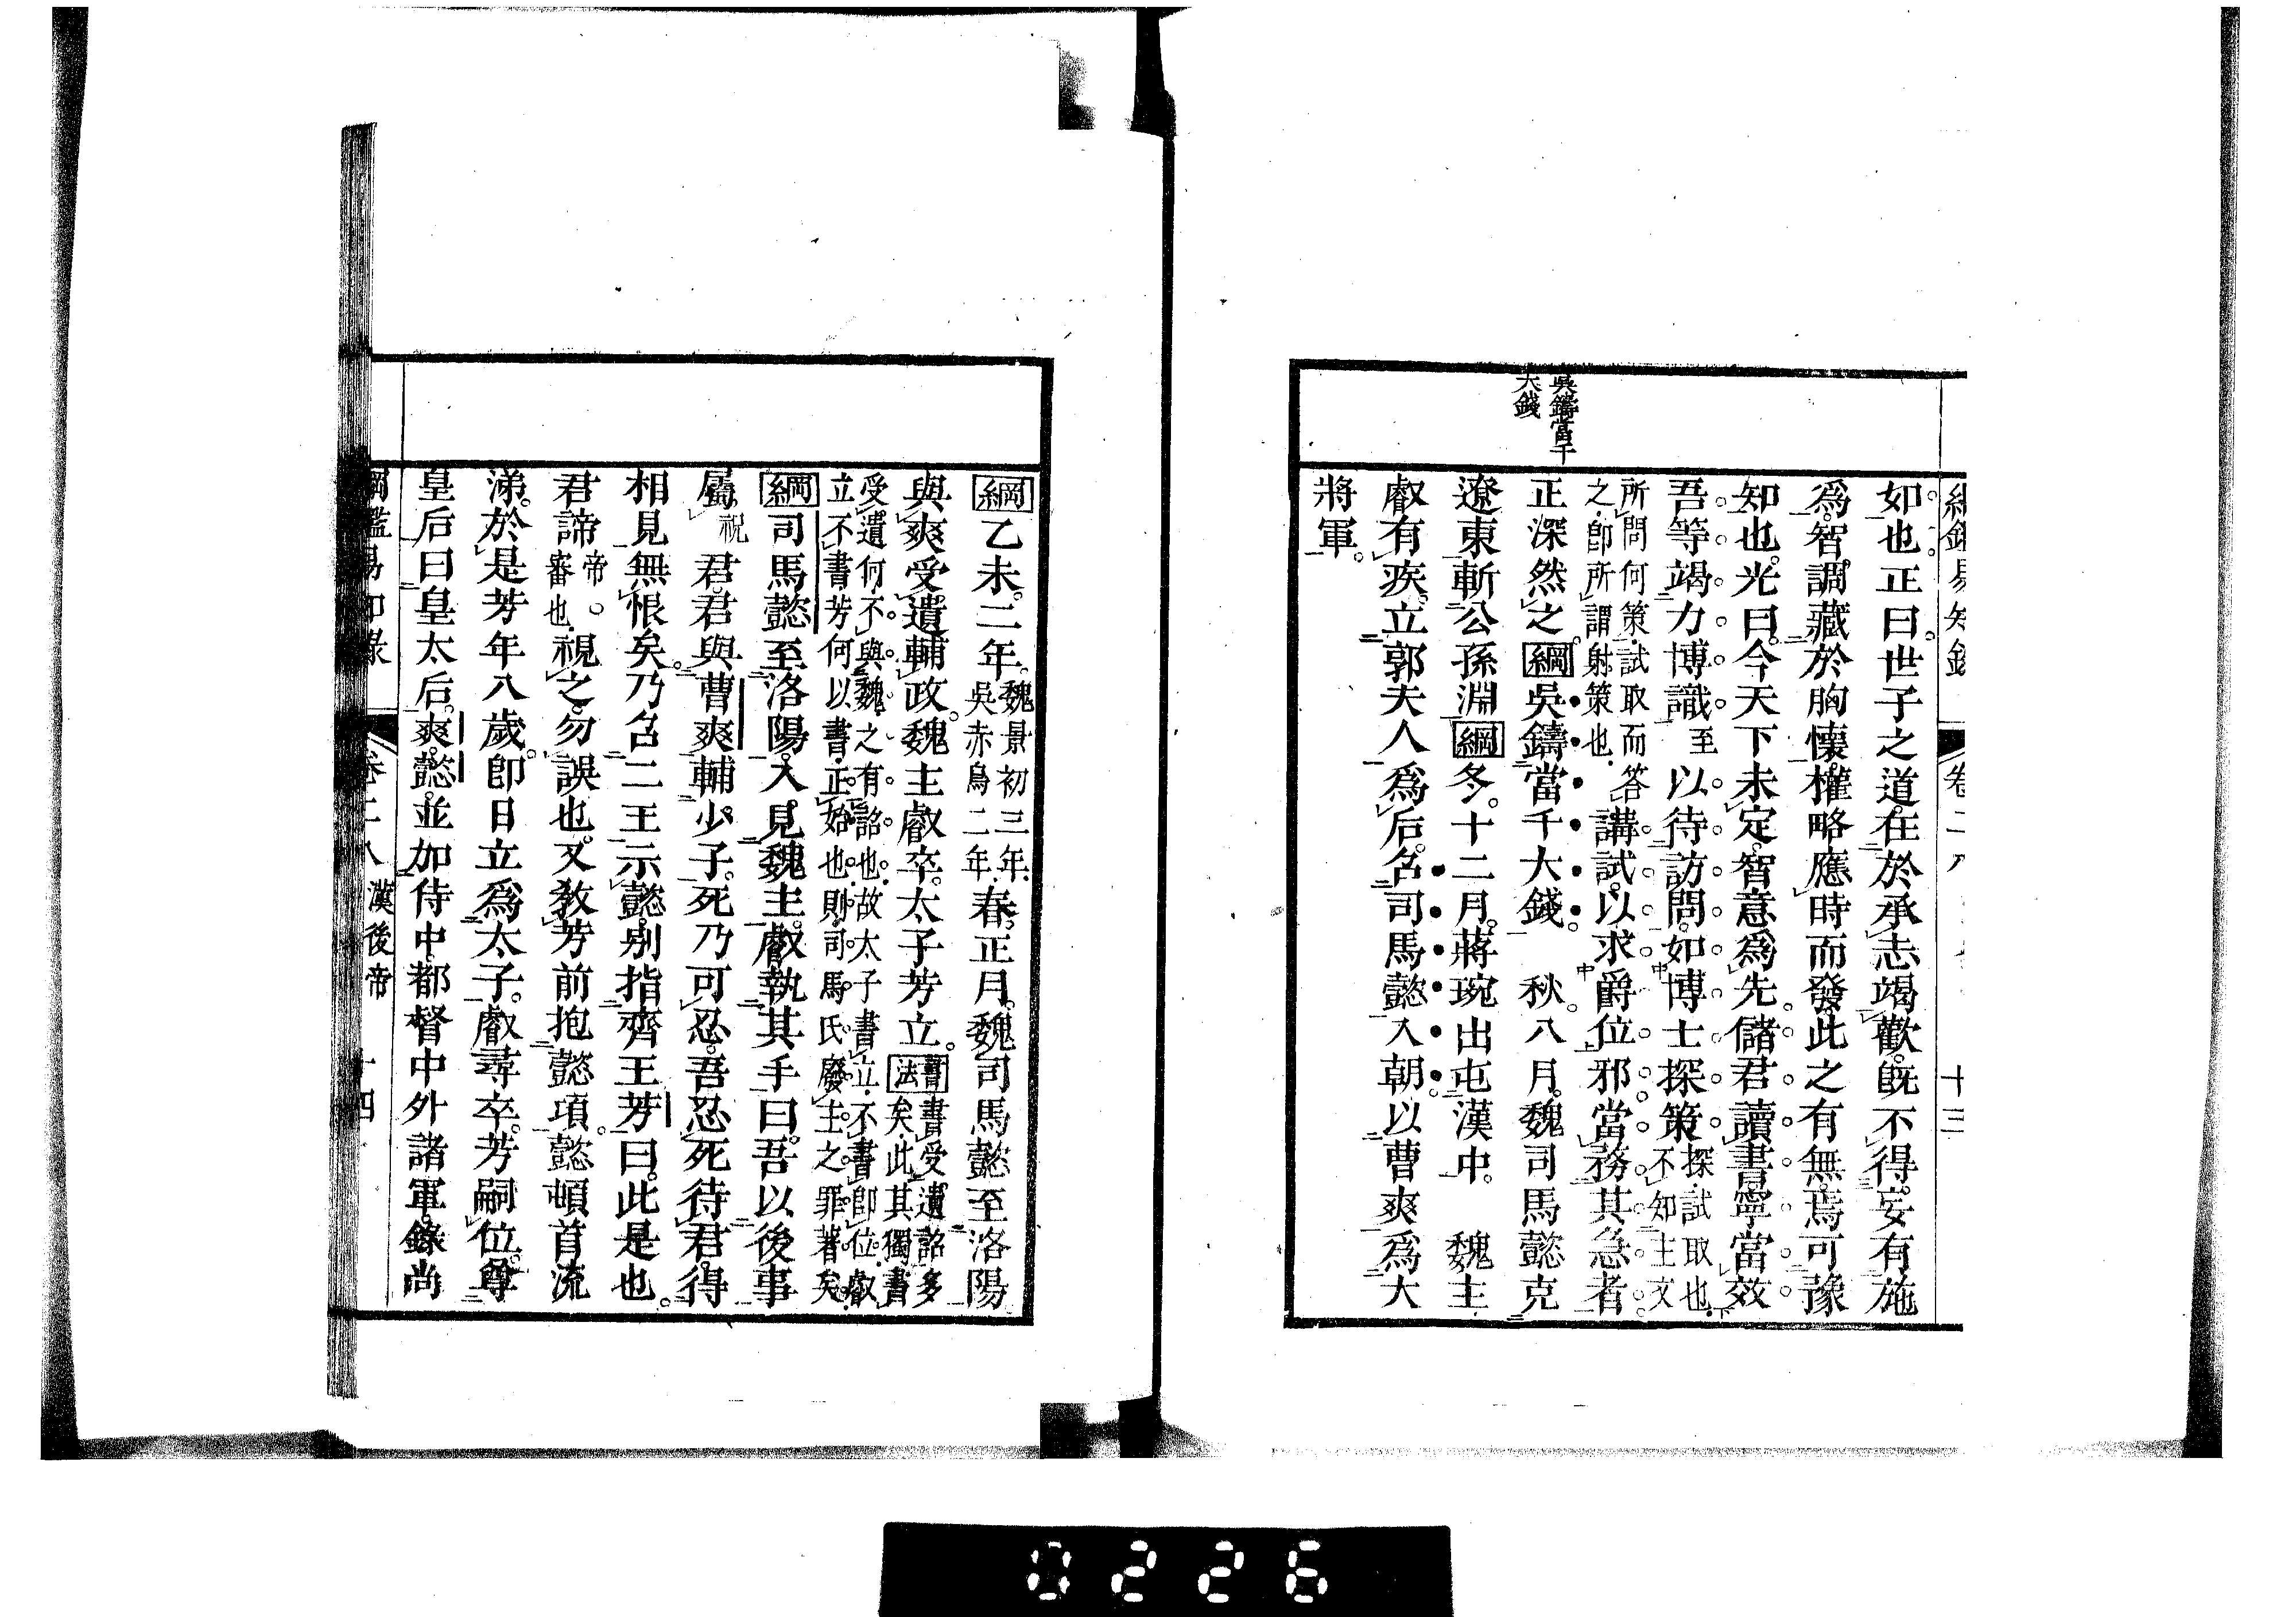 綱鑑易知錄 卷二八 十三
如也。正曰。世子之道。在於承志竭歡。旣不得妄有施
爲。智調藏於胸懷。權略應時而發。此之有無。焉可豫
知也。光曰。今天下未定。智意爲先。儲君讀書。寧當效
吾等竭力博識。至以待訪問。如博士探策探試取也。不知主文
所問何策。試取而答之。卽所謂射策也。講試。以求爵位邪。當務其急者
吳鑄當千
大錢
正深然之。綱吳鑄當千大錢。 秋。八月。魏司馬懿克
遼東斬公孫淵。綱冬。十二月。蔣琬出屯漢中。 魏主
叡有疾。立郭夫人爲后。召司馬懿入朝。以曹爽爲大
將軍。
綱乙未。二年。魏景初三年。吳赤烏二年。春。正月。魏司馬懿至洛陽
與爽受遺輔政。魏主叡卒。太子芳立。書法書受遺詔多矣。此其獨書
受遺何。不與魏之有詔也。故太子書立。不書卽位。叡
立不書。芳何以書。正始也。則司馬氏廢主之罪著矣。
綱司馬懿至洛陽。入見魏主。叡執其手曰。吾以後事
屬祝君。君與曹爽輔少子。死乃可忍。吾忍死待君。得
相見無恨矣。乃召二王示懿。別指齊王芳曰。此是也。
君諦帝。審也。視之。勿誤也。又教芳前抱懿項。懿頓首流
涕。於是芳年八歲。卽日立爲太子。叡尋卒。芳嗣位。尊
皇后曰皇太后。爽懿並加侍中。都督中外諸軍。錄尚
綱鑑易知錄 卷二八 漢後帝 十四